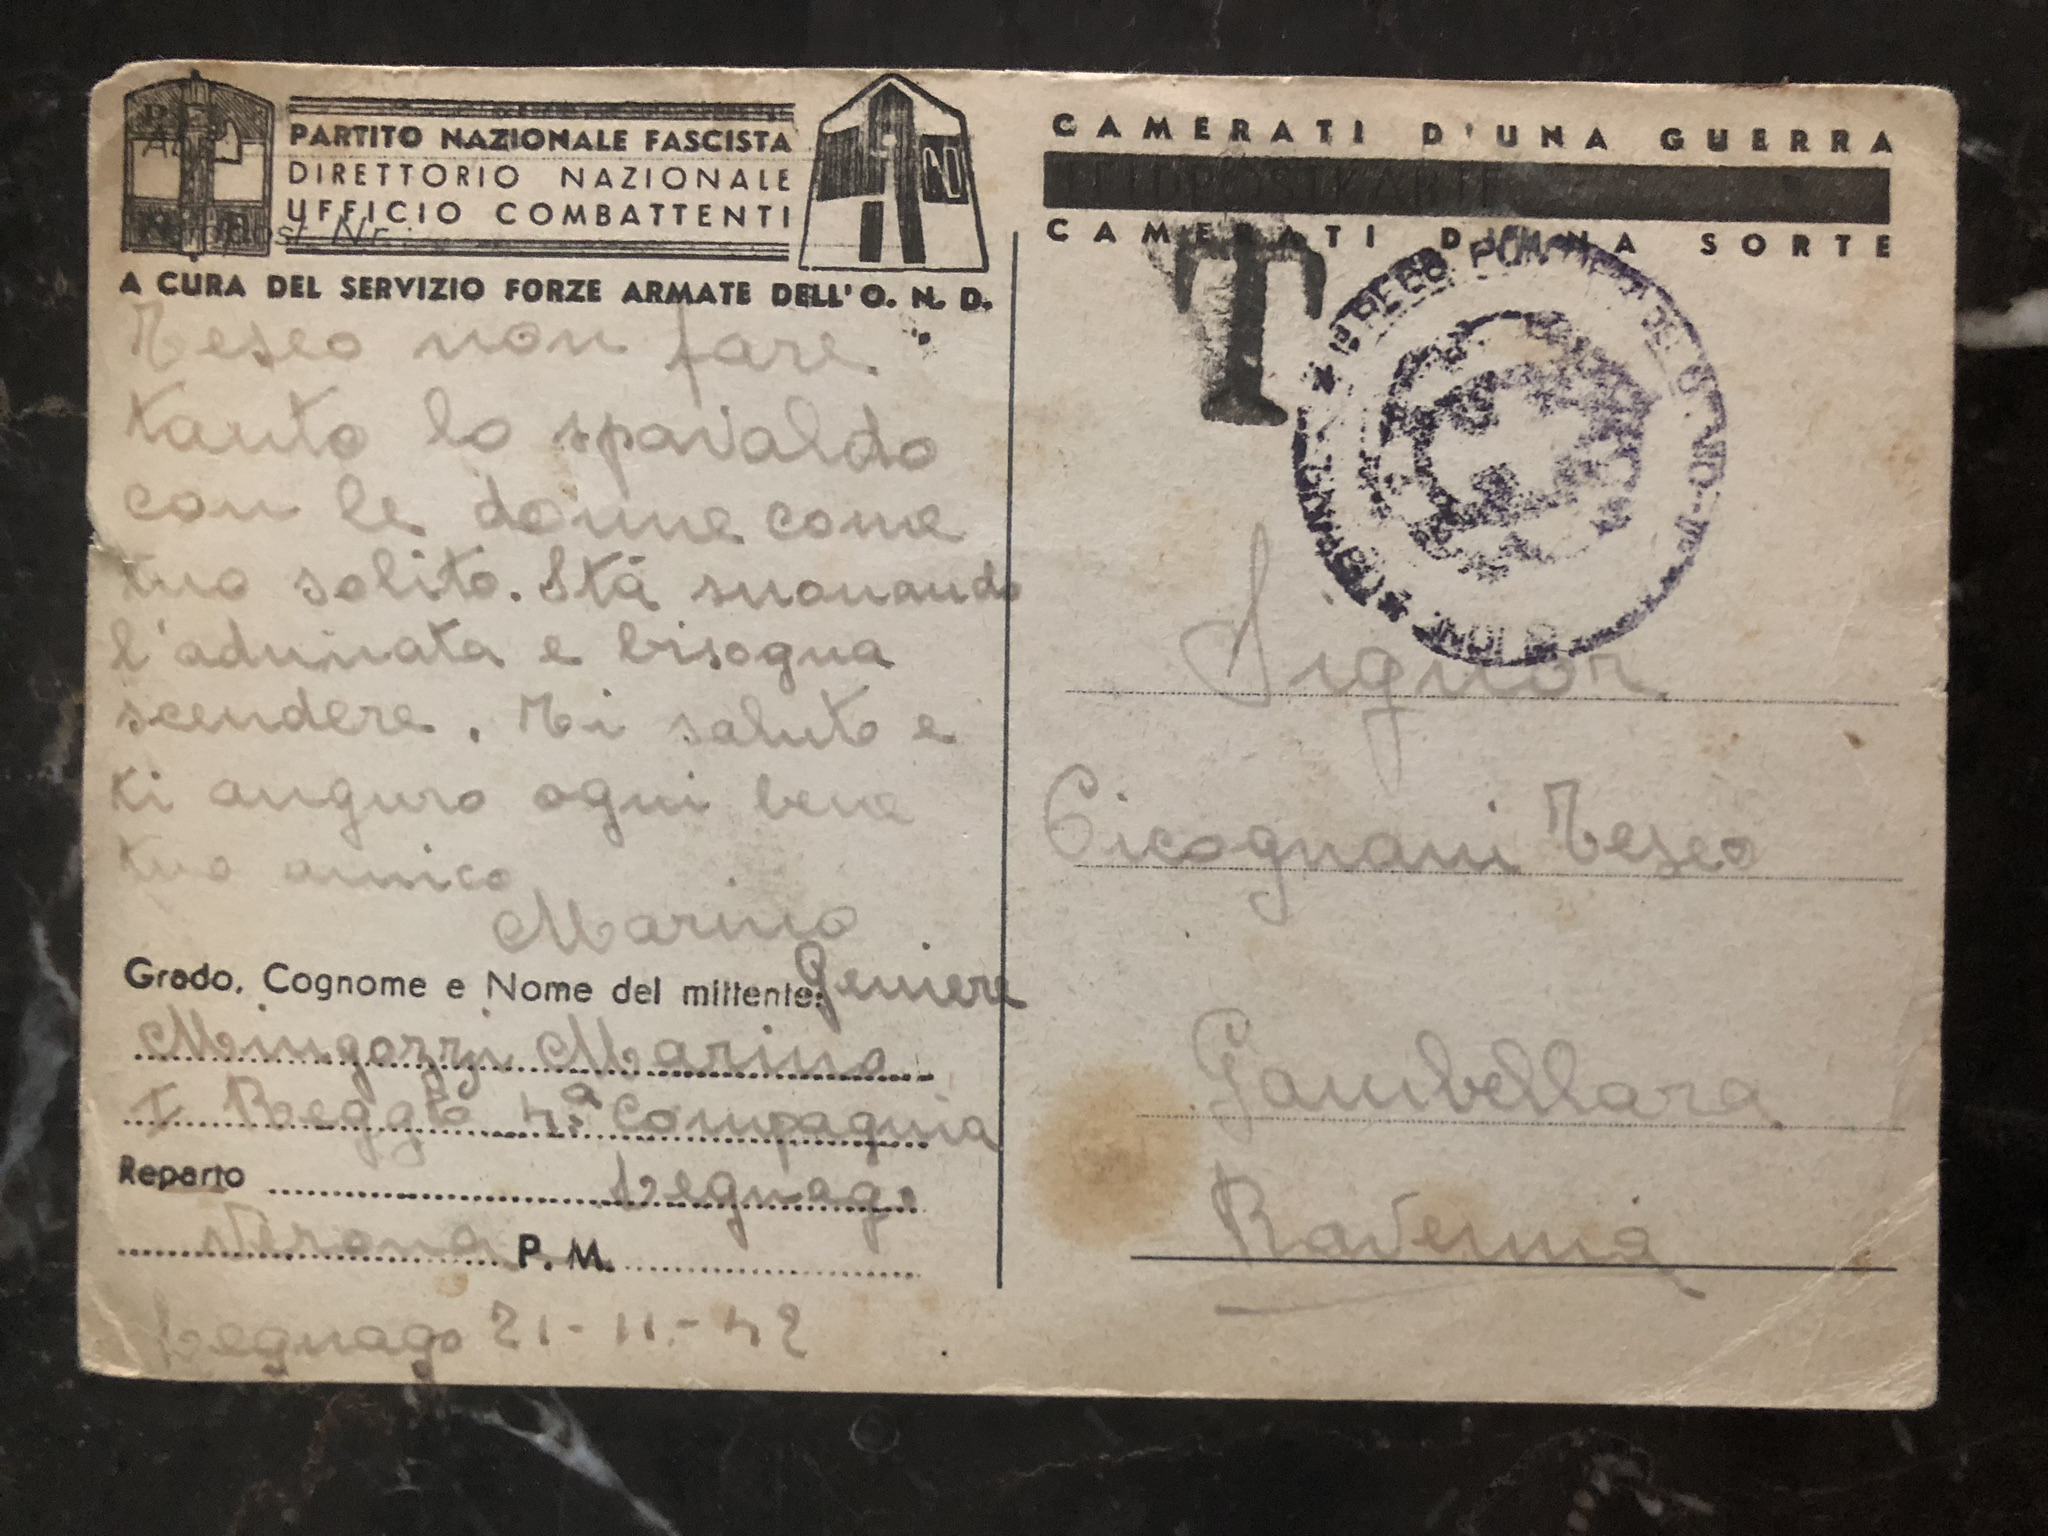 PARTITO NAZIONALE FASCISTA
DIRETTORIO NAZIONALE
UFFICIO COMBATTENTI
Nr.
A CURA DEL SERVIZIO FORZE ARMATE DELL'O. N. D.
Teseo non fare
tanto lo spavaldo
con le donne come
tuo solito. Stà suonando
l'adunata e bisogna
scendere. Ti saluto e
ti auguro ogni bene
tuo amico
Marino
Grado, Cognome e Nome del mittente: Geniere
Mingozzi Marino
I Reggto 4ª Compagnia
Reparto Legnago
Verona P. M.
Legnago 21-11-42
CAMERATI D'UNA GUERRA
FELDPOSTKARTE
CAMERATI D'UNA SORTE
T
Signor
Cicognani Teseo
Gambellara
Ravenna